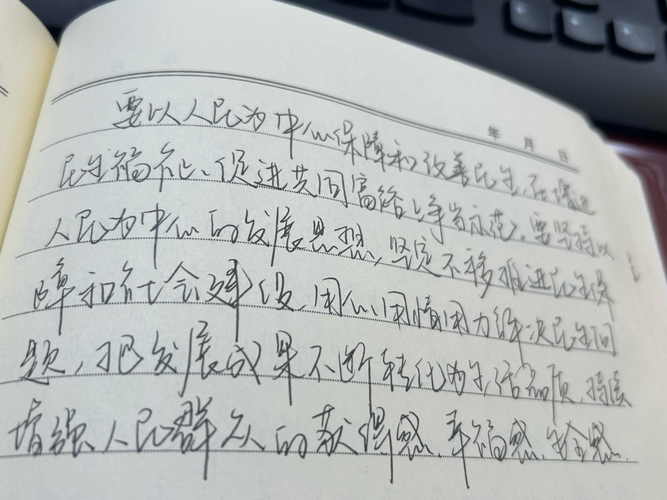 年 月 日
要以人民为中心保障和改善民生,在增进
民生福祉、促进共同富裕上争当示范。要坚持以
人民为中心的发展思想,坚定不移推进民生保
障和社会建设,用心用情用力解决民生问
题,把发展成果不断转化为生活品质,持续
增强人民群众的获得感、幸福感、安全感.